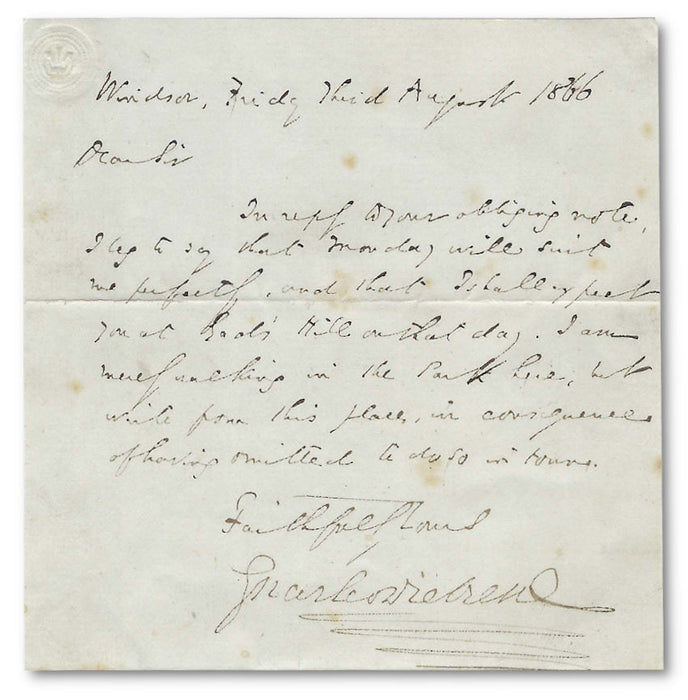 Windsor, Friday Third August 1866
Dear Sir
In reply to your obliging note,
I beg to say that Monday will suit
me perfectly, and that I shall expect
you at Gad's Hill on that day. I am
merely walking in the Park here, but
write from this place, in consequence
of having omitted to do so in town.
Faithfully Yours
Charles Dickens